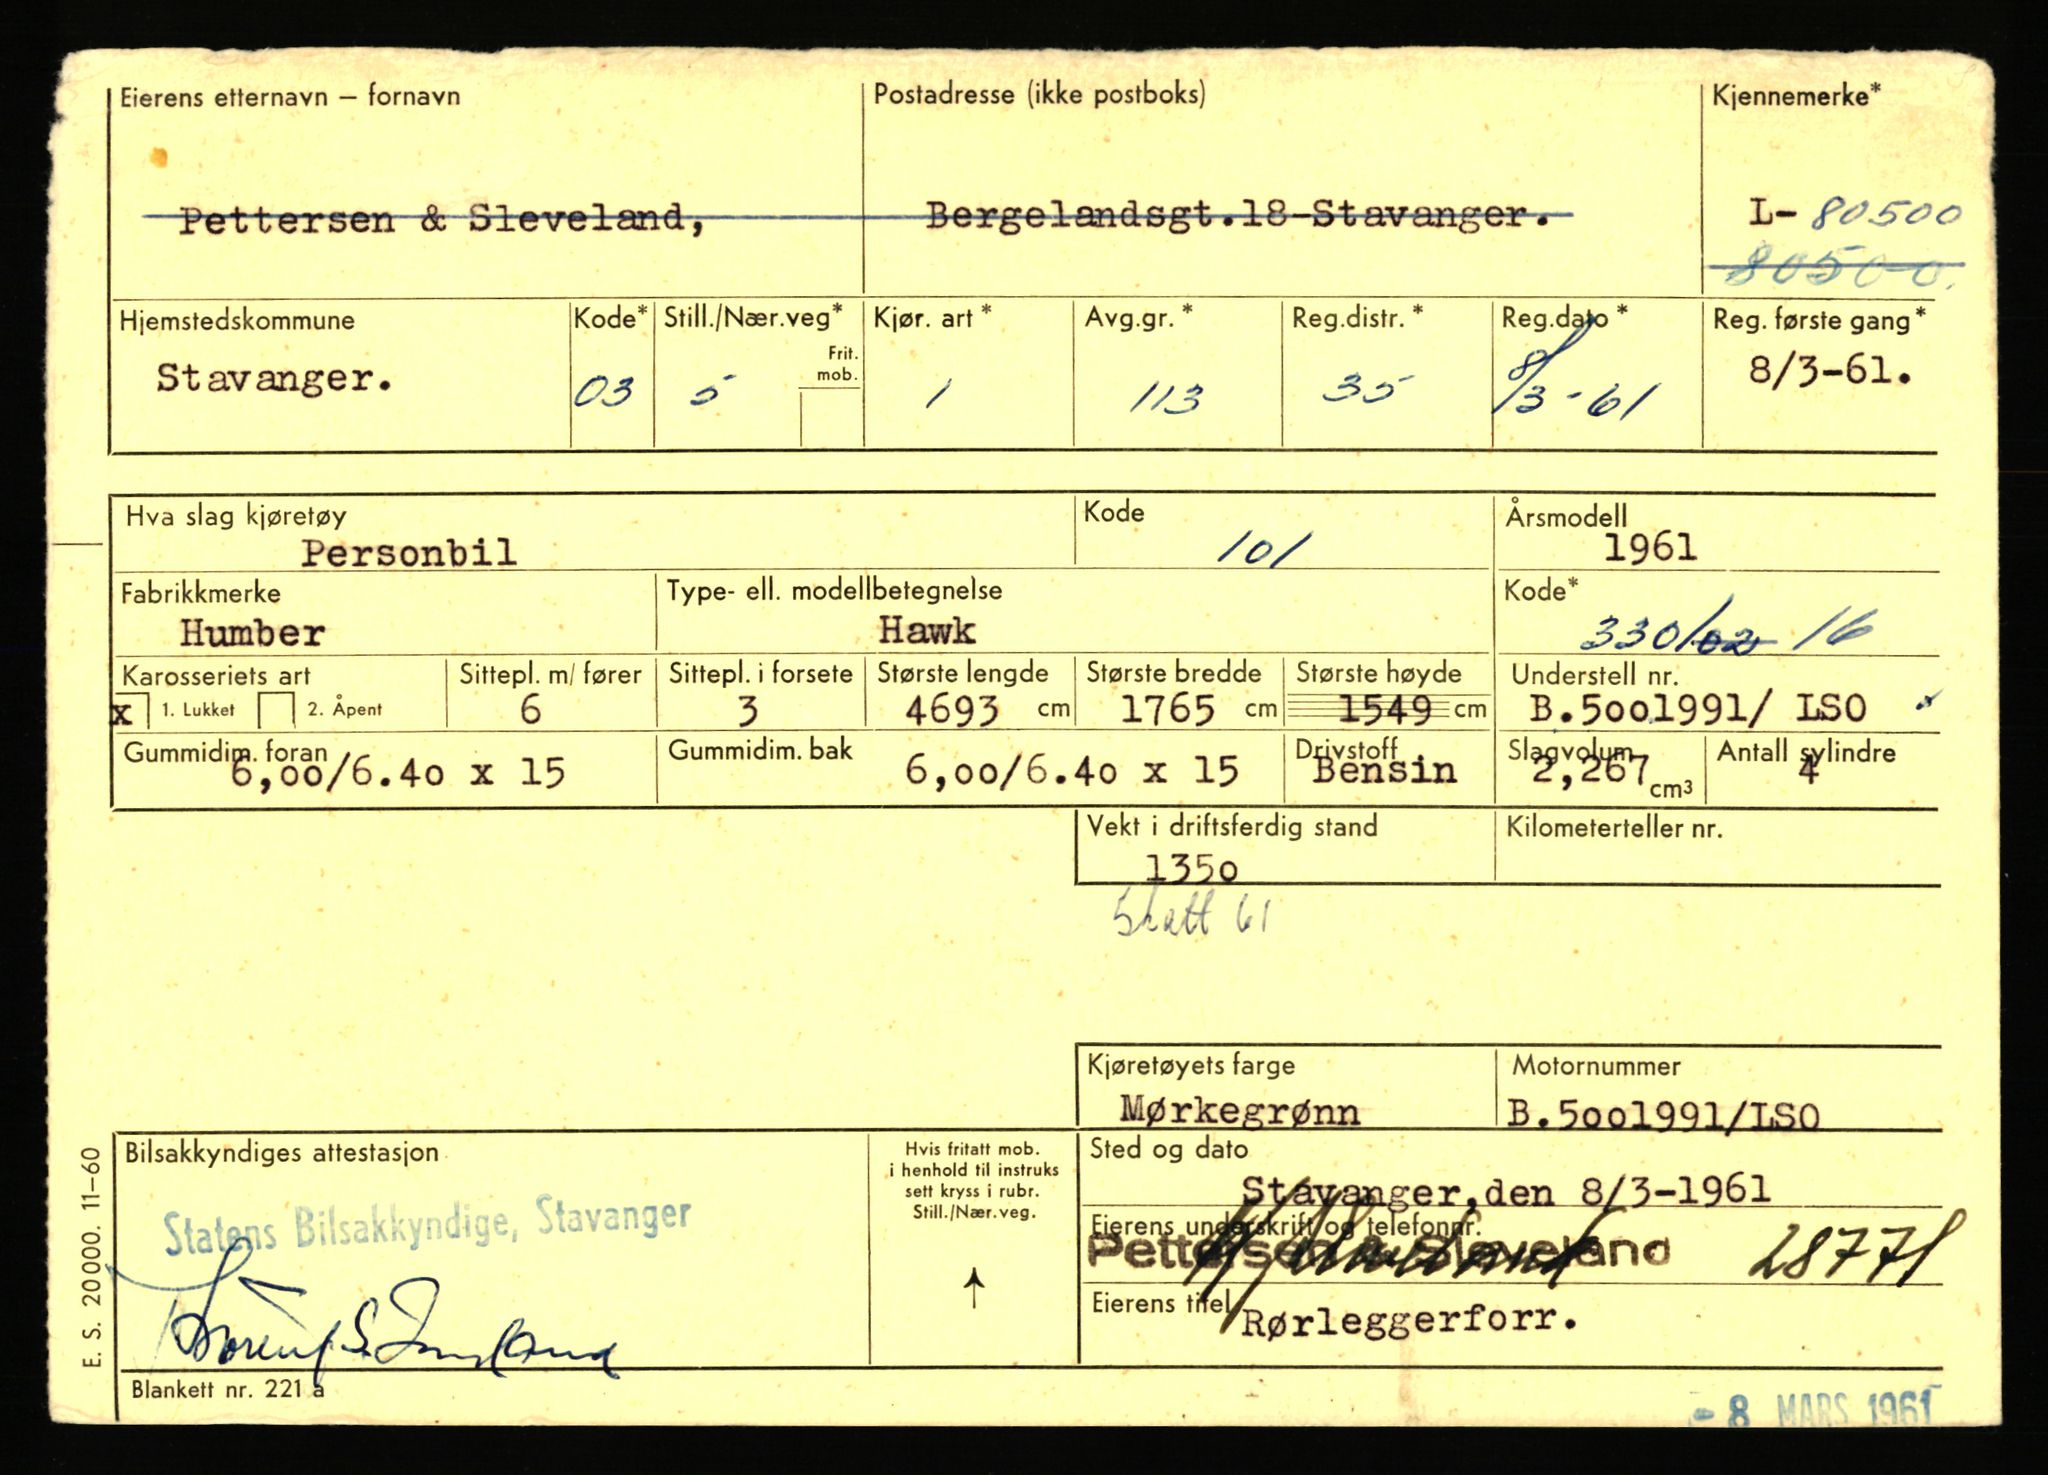 Eierens etternavn – fornavn Postadresse (ikke postboks) Kjennemerke*
Pettersen & Sleveland, Bergelandsgt.18-Stavanger. L- 80500
80500.
Hjemstedskommune Kode* Still./Nær.veg* Kjør. art * Avg.gr. * Reg.distr. * Reg.dato * Reg. første gang*
Frit.
mob.
Stavanger. 03 5 1 113 35 8/3-61 8/3-61.
Hva slag kjøretøy Kode Årsmodell
Personbil 101 1961
Fabrikkmerke Type- ell. modellbetegnelse Kode*
Humber Hawk 330/02 16
Karosseriets art Sittepl. m/ fører Sittepl. i forsete Største lengde Største bredde Største høyde Understell nr.
x 1. Lukket 2. Åpent 6 3 4693 cm 1765 cm 1549 cm B.5oo1991/ LSO
Gummidim. foran Gummidim. bak Drivstoff Slagvolum Antall sylindre
6,oo/6.4o x 15 6,oo/6.4o x 15 Bensin 2,267 cm³ 4
Vekt i driftsferdig stand Kilometerteller nr.
135o
Skatt 61
Kjøretøyets farge Motornummer
Mørkegrønn B.5oo1991/LSO
Bilsakkyndiges attestasjon Hvis fritatt mob.
i henhold til instruks
sett kryss i rubr.
Still./Nær.veg.
Sted og dato
Stavanger,den 8/3-1961
Statens Bilsakkyndige, Stavanger
Eierens underskrift og telefonnr.
Pettersen & Sleveland 28771
Eierens titel
Rørleggerforr.
E. S. 20000. 11-60
Blankett nr. 221 a
- 8 MARS 1961